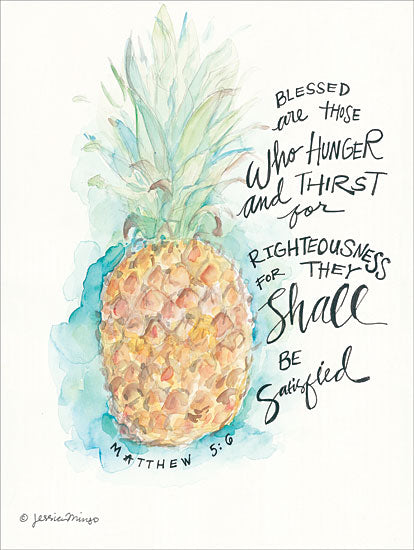 BLESSED
are THOSE
Who HUNGER
and THIRST
for
RIGHTEOUSNESS
FOR THEY
Shall
BE
Satisfied
MATTHEW 5:6
© Jessica Mingo